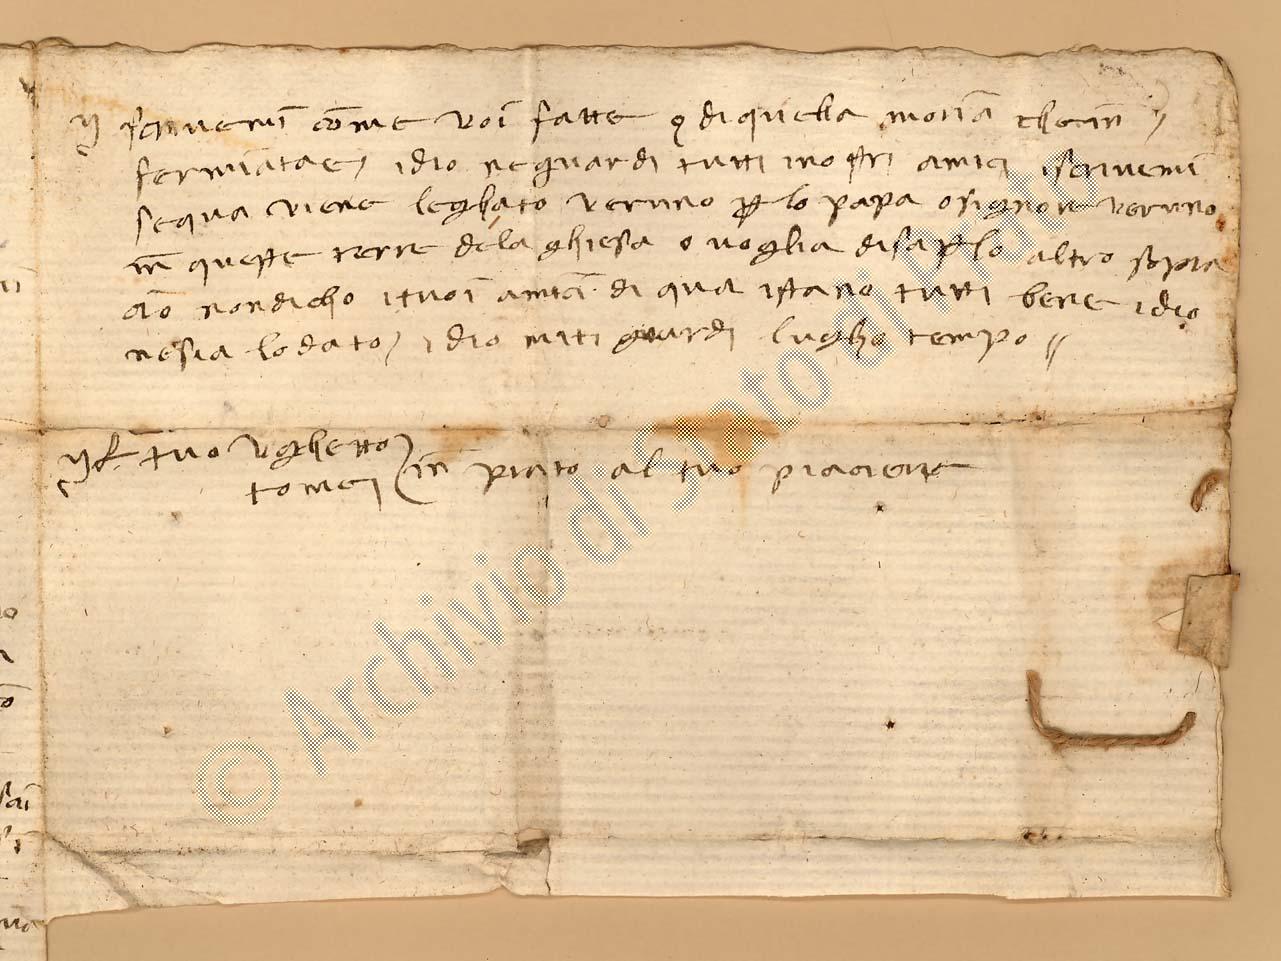 scrivemi chome voi fatte
fermiatae, idio ne guardi tutti i nostri amici iscrivemi
se qua viene leghato veruno per lo papa o signore veruno
in queste terre de la ghiesa o voglia di saperlo altro sopra
ciò non dicho i tuoi amici di qua istano tutti bene idio
ne sia lodato, idio mi ti guardi lugho tempo //
tuo Ughetto
in prato al tuo piaciere
© Archivio di Stato di Prato